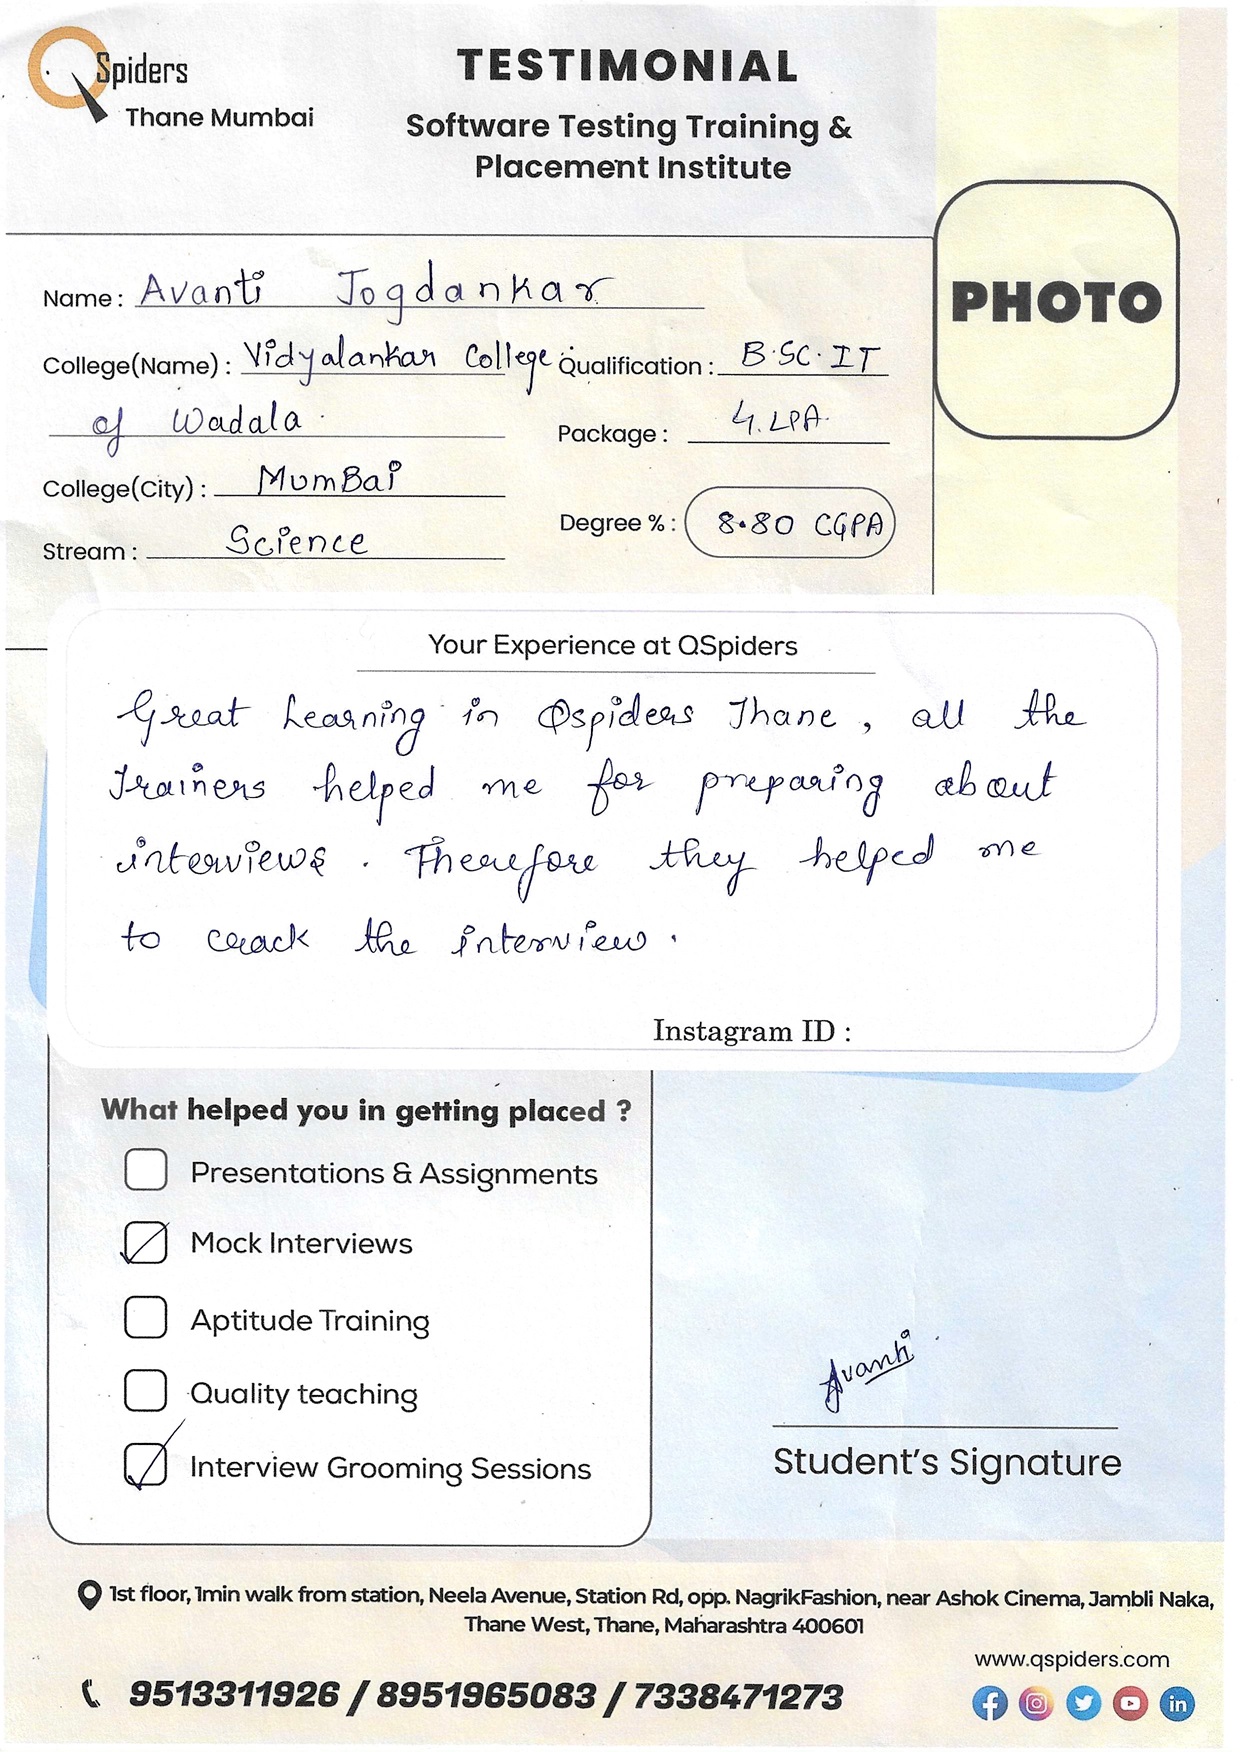 QSpiders
Thane Mumbai
TESTIMONIAL
Software Testing Training &
Placement Institute
PHOTO
Name : Avanti Jogdankar
College(Name) : Vidyalankar College
of Wadala.
Qualification : B.SC.IT
Package : 4.LPA.
College(City) : MumBai
Degree % : 8.80 CGPA
Stream : Science
Your Experience at QSpiders
Great Learning in Qspiders Thane, all the
Trainers helped me for preparing about
interviews. Therefore they helped me
to crack the interview.
Instagram ID :
What helped you in getting placed ?
Presentations & Assignments
Mock Interviews
Aptitude Training
Quality teaching
Interview Grooming Sessions
Avanti
Student's Signature
1st floor, 1min walk from station, Neela Avenue, Station Rd, opp. NagrikFashion, near Ashok Cinema, Jambli Naka,
Thane West, Thane, Maharashtra 400601
www.qspiders.com
9513311926 / 8951965083 / 7338471273
in